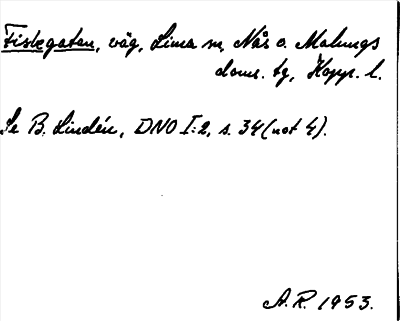 Fiskegatan, väg, Lima sn, Nås o. Malungs
doms. tg, Kopp. l.
Se B. Lindén, DNO I:2, s. 34 (not 4).
A.R. 1953.